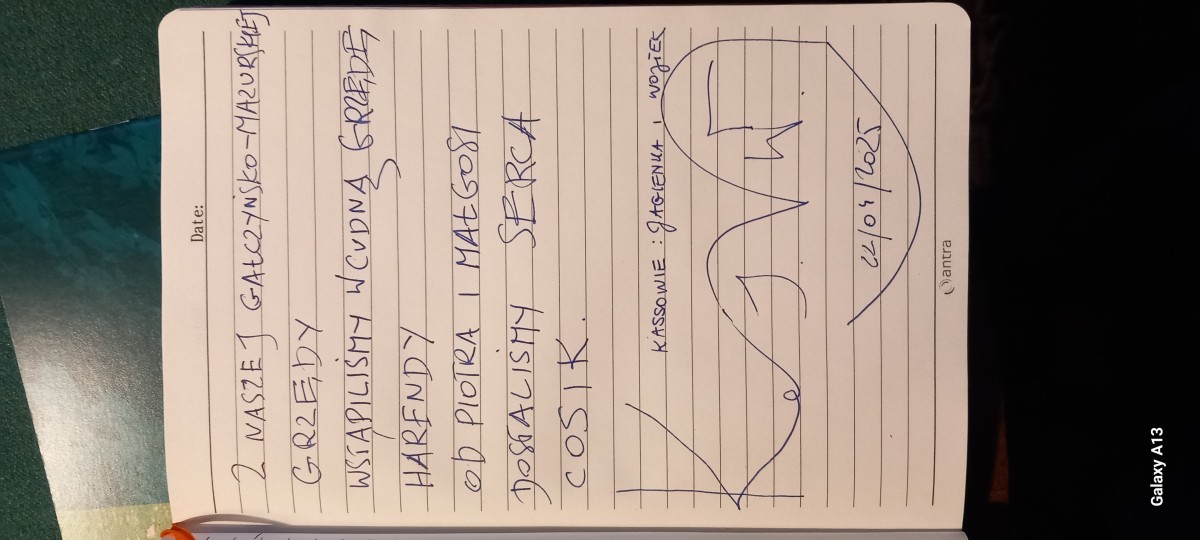 Date:
Z NASZEJ GAŁCZYŃSKO-MAZURSKIEJ
GRZĘDY
WSTĄPILIŚMY W CUDNĄ GRZĘDĘ
HARENDY
OD PIOTRA I MAŁGOSI
DOSTALIŚMY SERCA
COSIK.
KASSOWIE: JAGIENKA I WOJTEK
K
J. W.
22/04/2025
antra
Galaxy A13